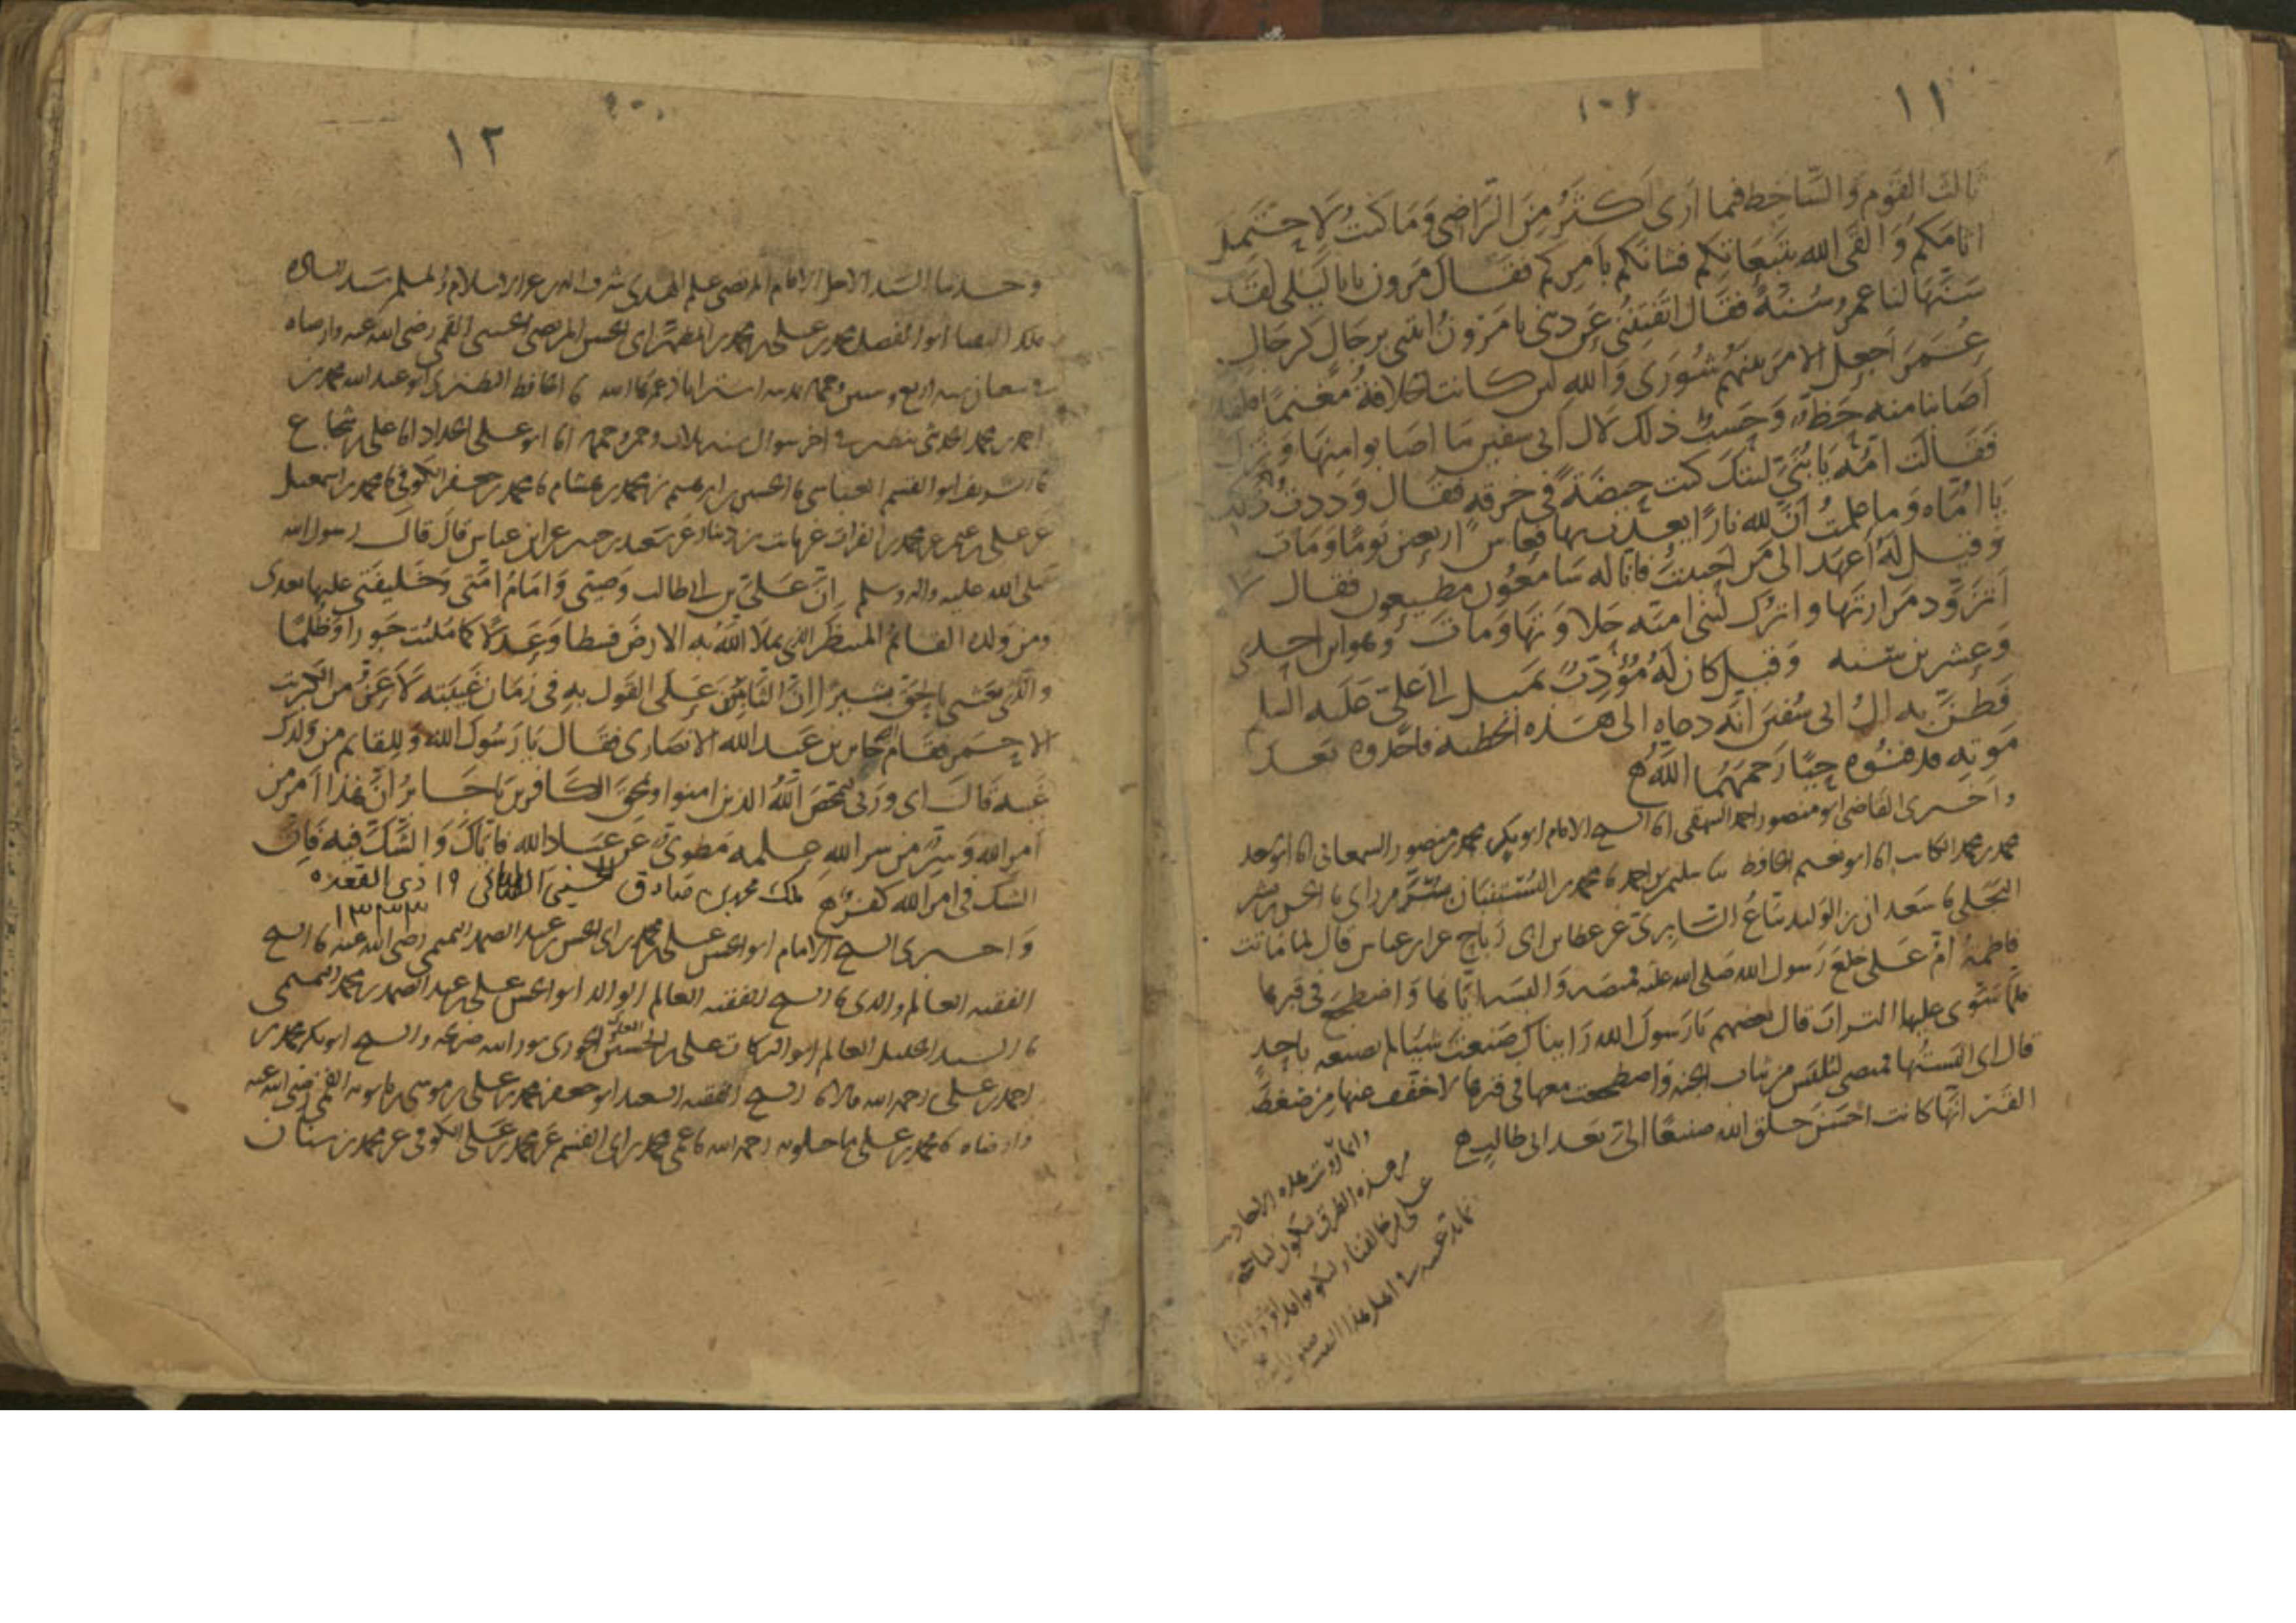 ١١
ثالث القوم والساخط فيما أرى أكثر من الراضي وما كنت لأحتمل
آثامكم وألقى الله بتبعاتكم فشأنكم بأمركم فقال مرون يا با ليلى لقد
سنها لنا عمر سنة فقال اتفتنني عن ديني يا مرون ائتني برجال كرجال
عمر اجعل الامر بينهم شورى والله لئن كانت الخلافة مغنما لقد
اصابنا منه حظا وحسب ذلك لال ابي سفين ما اصابوا منها ونزل
فقالت امه يا بني ليتك كنت حيضة في خرقة فقال وددت ذلك
يا اماه وما علمت ان لله نارا يعذب بها فعاش اربعين يوما ومات
وقيل له اعهد الى من احببت فانا له سامعون مطيعون فقال لا
اتزود مرارتها واترك لبني امية حلاوتها ومات وهو ابن احدى
وعشرين سنة وقيل كان له مؤدب يميل الى علي عليه السلم
فظن به ال ابي سفين انه دعاه الى هذه الخطبة فاخذوه بعد
موته فدفنوه حيا رحمهما الله
واخبرني القاضي ابو منصور احمد البيهقي انا الشيخ الامام ابو بكر محمد بن منصور السمعاني انا ابو سعد
محمد بن محمد الكاتب انا ابو نعيم الحافظ نا سليمن بن احمد نا محمد بن
البجلي نا سعدان بن الوليد بياع السابري عن عطا بن ابي رباح عن ابن عباس قال لما ماتت
فاطمة ام علي خلع رسول الله صلى الله عليه قميصه والبسها اياها واضطجع في قبرها
فلما سوى عليها التراب قال بعضهم يا رسول الله رايناك صنعت شيئا لم تصنعه باحد
قال اني البستها قميصي لتلبس من ثياب الجنة واضطجعت معها في قبرها لاخفف عنها من ضغطة
القبر انها كانت احسن خلق الله صنيعا الي بعد ابي طالب
وانما رويت هذه الاحاديث
من هذه الطرق ليكون
على من خالفنا
١٢
وحدثنا السيد الاجل الامام المرتضى علم الهدى شرف الدين عز الاسلام والمسلمين سيد السادة
ملك النقبا ابو الفضل محمد بن علي بن محمد بن المطهر ابي الحسن المرتضى الحسيني القمي رضي الله عنه وارضاه
احمد بن محمد في اخر شوال سنة ثلاث وخمسين وخمسمائة انا ابو علي الحداد انا علي بن شجاع
نا الشريف ابو القسم العباسي نا الحسين بن ابرهيم بن محمد بن هشام نا محمد بن جعفر الكوفي نا محمد بن اسمعيل
عن علي بن عن محمد بن الفرات عن ثابت بن دينار عن سعيد بن جبير عن ابن عباس قال قال رسول الله
صلى الله عليه واله وسلم ان علي بن ابي طالب وصيي وامام امتي وخليفتي عليها بعدي
ومن ولده القائم المنتظر الذي يملا الله به الارض قسطا وعدلا كما ملئت جورا وظلما
والذي بعثني بالحق بشيرا ان الثابتين على القول به في زمان غيبته لاعز من الكبريت
الاحمر فقام جابر بن عبد الله الانصاري فقال يا رسول الله وللقايم من ولدك
غيبة قال اي وربي ليمحص الله الذين امنوا ويمحق الكافرين يا جابر ان هذا امر من
امر الله وسر من سر الله علمه مطوي عن عباد الله فاياك والشك فيه فان
الشك في امر الله كفر ملك محمد بن صادق الحسيني ١٩ ذي القعده
١٣٣٣
واخبرني الشيخ الامام ابو الحسن علي بن محمد بن ابي الحسن بن عبد الصمد التميمي رضي الله عنه نا الشيخ
الفقيه العالم والدي نا الشيخ الفقيه العالم الوالد ابو الحسن علي بن عبد الصمد بن محمد التميمي
نا السيد الجليل العالم ابو البركات علي بن الحسين العلوي الجوري نور الله ضريحه والشيخ ابو بكر محمد بن
احمد بن علي رحمه الله قالا نا الشيخ الفقيه السعيد ابو جعفر محمد بن علي بن موسى بن بابويه القمي رضي الله عنه
وارضاه نا محمد بن علي ماجيلويه رحمه الله نا عمي محمد بن ابي القسم عن محمد بن علي الكوفي عن محمد بن سنان